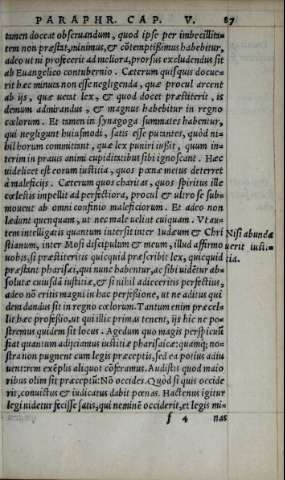 PARAPHR. CAP. V. 87
tamen doceat obseruandum, quod ipse per imbecillita⸗
tem non præstat, minimus, & cõtemptissimus habebitur,
adeo ut ni profecerit ad meliora, prorsus excludendus sit
ab Euangelico contubernio. Cæterum quisquis docue⸗
rit hæc minuta non esse negligenda, quæ procul arcent
ab ijs, quæ uetat lex, & quod docet præstiterit, is
demum admirandus, & magnus habebitur in regno
cœlorum. Et tamen in synagoga summates habentur,
qui negligunt huiusmodi, satis esse putantes, quòd ni⸗
hil horum committant, quæ lex puniri iussit, quum in⸗
terim in prauis animi cupiditatibus sibi ignoscant. Hæc
uidelicet est eorum iustitia, quos pœnæ metus deterret
à maleficijs. Cæterum quos charitas, quos spiritus ille
cœlestis impellit ad perfectiora, procul & ultro se sub⸗
mouent ab omni confinio maleficiorum. Et adeo non
lædunt quenquam, ut nec male uelint cuiquam. Vt au⸗
tem intelligatis quantum intersit inter Iudæum & Chri
stianum, inter Mosi discipulum & meum, illud affirmo
uobis, si præstiteritis quicquid præscribit lex, quicquid
præstant pharisæi, qui nunc habentur, ac sibi uidẽtur ab⸗
solutæ cuiusdã iustitiæ, & si nihil adieceritis perfectius,
adeo nõ eritis magni in hac perfessione, ut ne aditus qui
dem dandus sit in regno cœlorum. Tantum enim præcel⸗
lit hæc professio, ut qui illic primas tenent, ijs hic ne po⸗
stremus quidem sit locus. Agedum quo magis perspicuũ
fiat quantum adijciamus iustitiæ pharisaicæ: quamq; no⸗
stra non pugnent cum legis præceptis, sed ea potius adiu
uent: rem exẽplis aliquot cõferamus. Audistis quod maio
ribus olim sit præceptũ: Nõ occides. Quod si quis occide
rit, conuictus & iudicatus dabit pœnas. Hactenus igitur
legi uidetur fecisse satis, qui neminẽ occiderit, et legis mi⸗
f 4 nas
Nisi abundæ
uerit iusti⸗
tia.